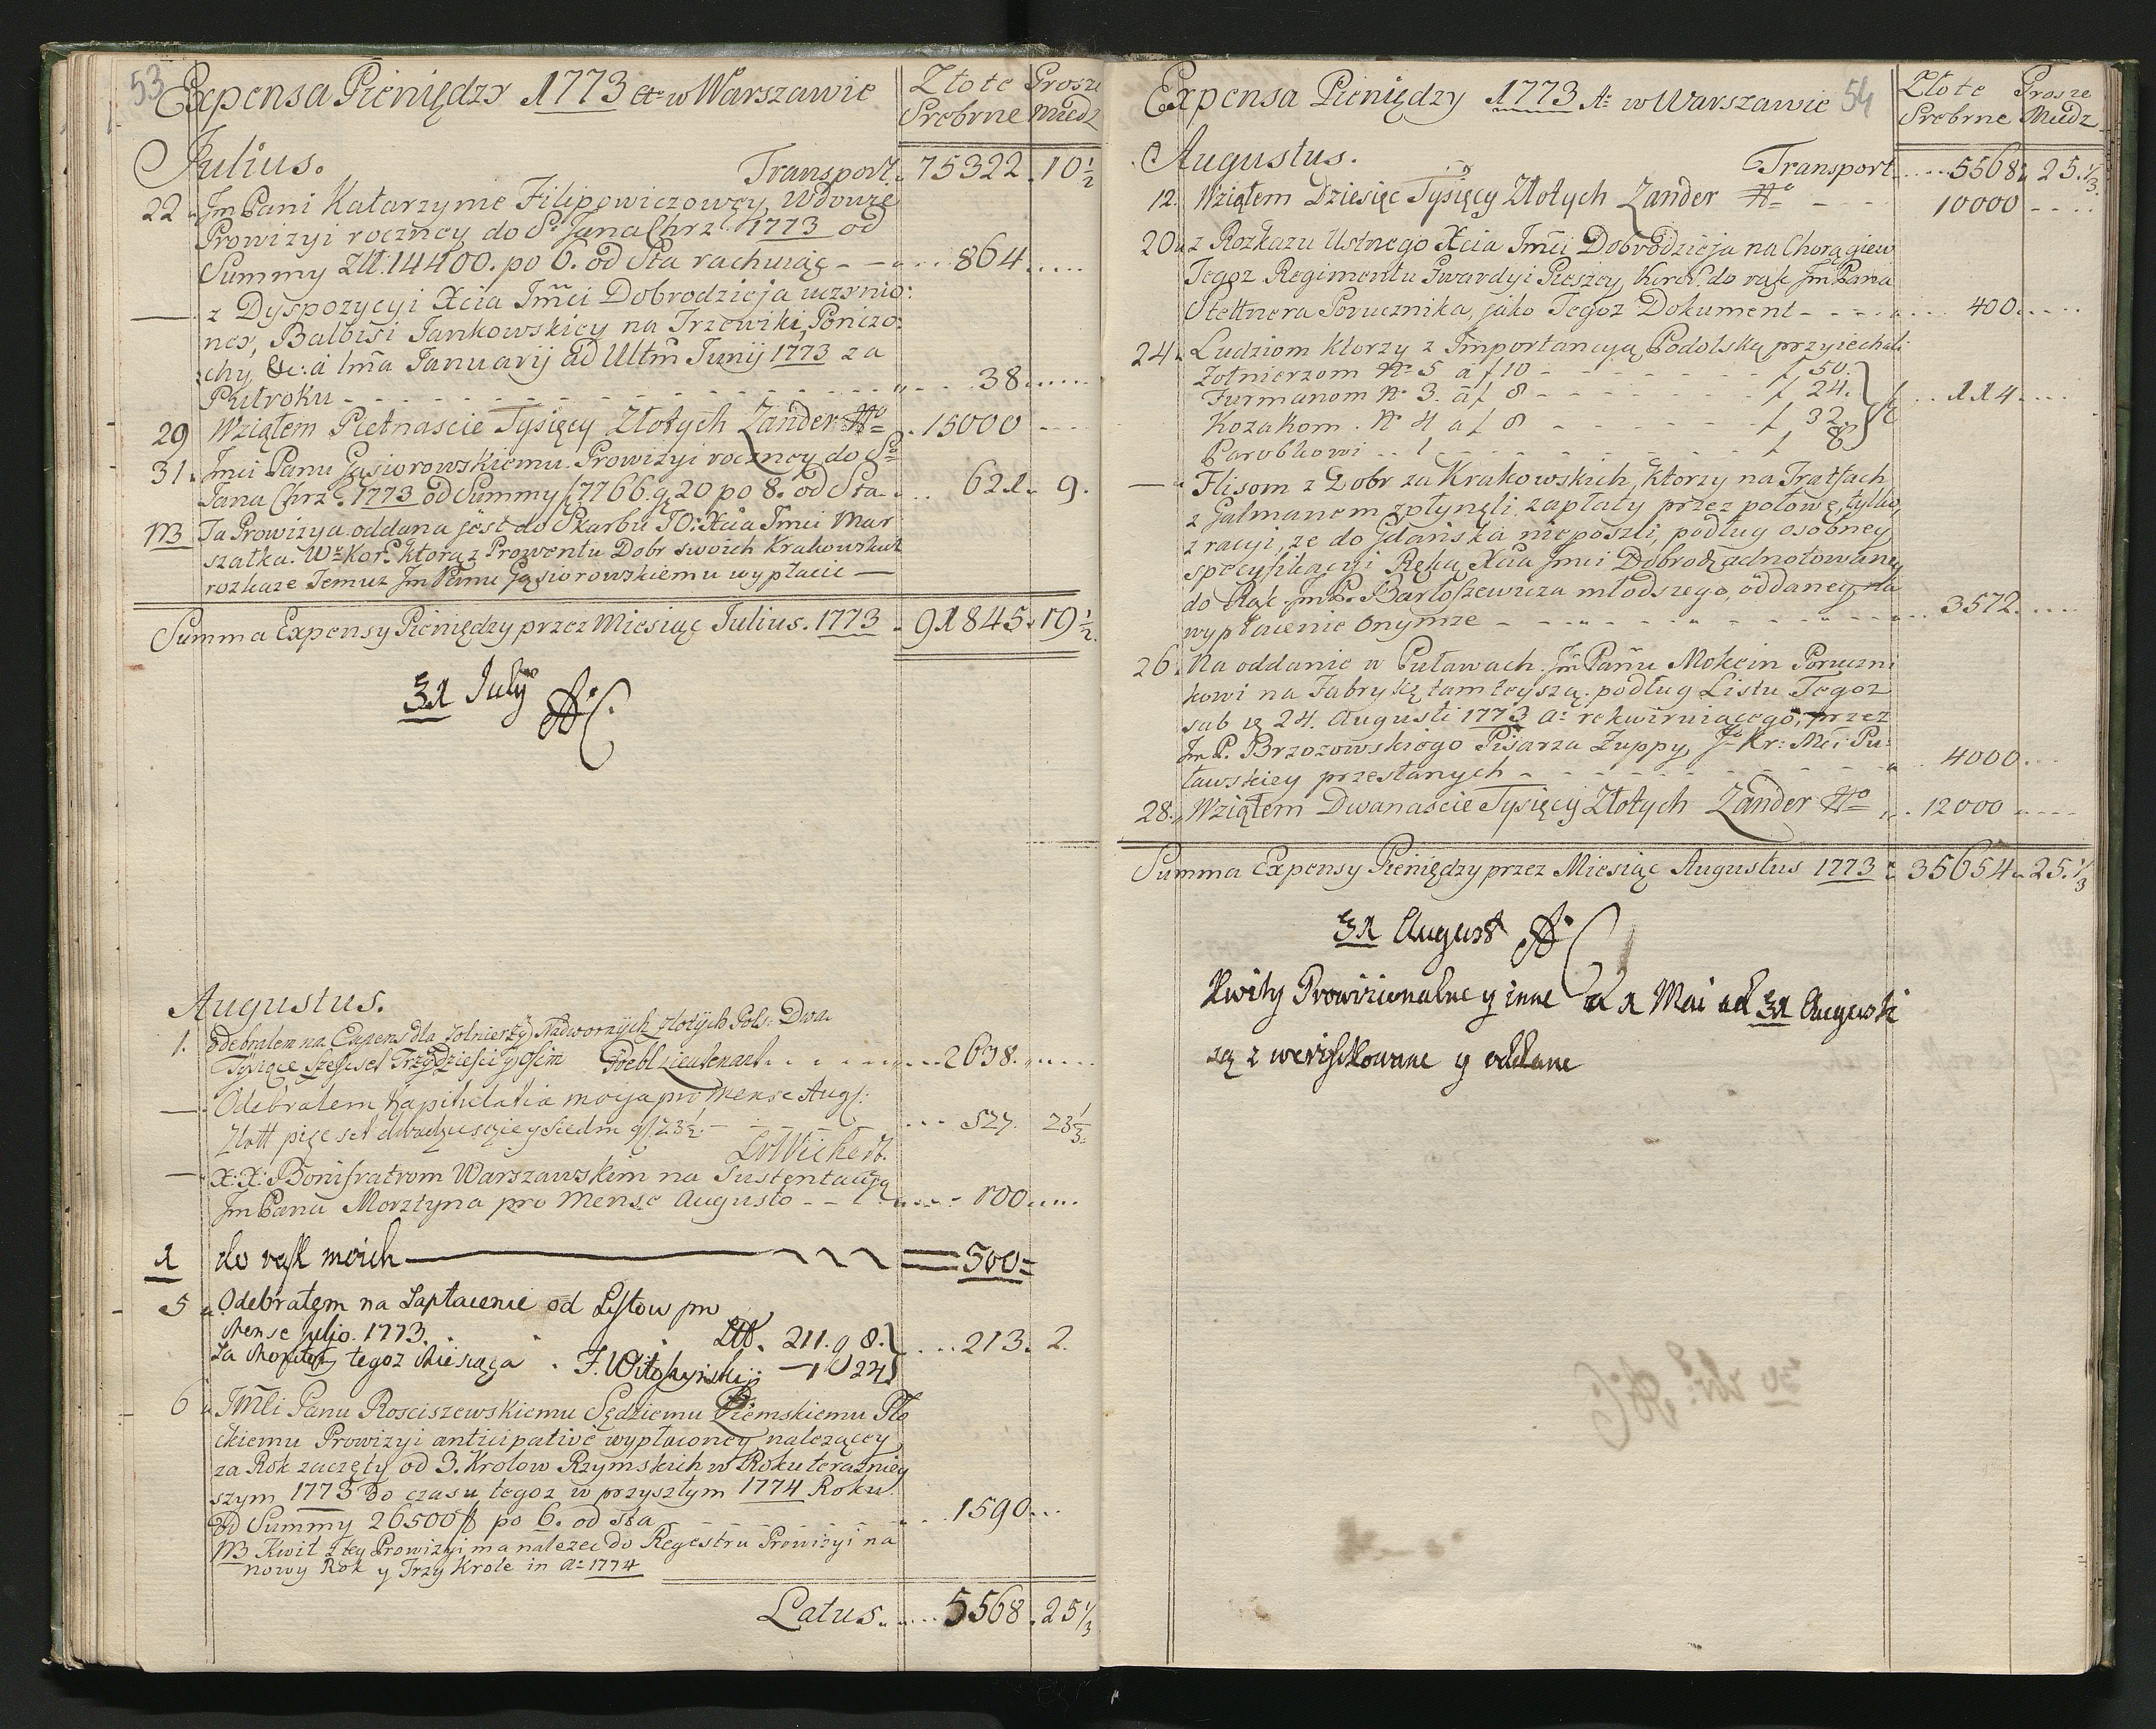 53
Expensa Pieniędzy 1773 A. w Warszawie
Złote Grosze
Srebrne Miedz
Julius.
Transport. 75322. 10 1/2
22 JmPani Katarzynie Filipowiczowey Wdowie
Prowizyi roczney do S. Jana Chrz. 1773 od
Summy Zll: 14400. po 6. od Sta rachuiąc - - 864
— z Dyspozycyi Xcia Jmci Dobrodzieja uczynio:
ney, Balbisi Jankowskiey na Trzewiki, Ponczo:
chy, &c: a 1ma Januarij ad Ultm Junij 1773 za
Pułroku - - - 38
29 Wziąłem Pietnascie Tysięcy Złotych Zander - 15000
31. Jmci Panu Gąsiorowskiemu Prowizyi roczney do S.
Jana Chrz. 1773 od Summy f 7766. g. 20 po 8. od Sta - 621. 9.
NB Ta Prowizya oddana jest do Skarbu JO: Xcia Jmci Mar
szałka. W. Kor. ktorą z Prowentu Dobr swoich Krakowskich
rozkaze Temuz JmPanu Gąsiorowskiemu wypłacic —
Summa Expensy Pieniędzy przez Miesiąc Julius. 1773 - 91845. 19 1/2
31 July
Augustus.
1. Odebrałem na Expens dla Zołnierzy Nadwornych Złotych Pols. Dwa
Tysiące Szescset Trzydziesci y Osim Lieutenant - 2638.
— Odebrałem kapitulatia moya pro mense Aug:
Złott pięcset dwadziescie y siedm g 23 1/3 - 527. 23 1/3
— X:X: Bonifratrom Warszawskim na Sustentacyą
JmPana Morztyna pro Mense Augusto - - 100
1 do rąk moich — 500
5 Odebrałem na Zapłacenie od Listow pro
Mense Julio. 1773. 211. g 8. 213. 2.
Za tegoz Miesiąca . J. — 1 24
6 Jmci Panu Rosciszewskiemu Sędziemu Ziemskiemu Pło
ckiemu Prowizyi anticipative wypłaconey należącey
za Rok zaczęty od 3. Krolow Rzymskich w Roku teraźniey
szym 1773 do czasu tegoz w przyszłym 1774 Roku
Od Summy 26500 f po 6. od sta - 1590
NB Kwit z tey Prowizyi ma nalezec do Regestru Prowizyi na
nowy Rok y Trzy Krole in A. 1774
Latus. 5568. 25 1/3
Expensa Pieniędzy 1773 A. w Warszawie 54
Złote Grosze
Srebrne Miedz
Augustus.
Transport 5568. 25. 1/3
12. Wziąłem Dziesięc Tysięcy Złotych Zander - 10000
20. z Rozkazu Ustnego Xcia Jmci Dobrodzieja na Chorągiew
Tegoz Regimentu Gwardyi Pieszey Kor. do rąk JmPana
Stettnera Porucznika, jako Tegoz Dokument - - - 400
24. Ludziom ktorzy z Importancyą Podolską przyiechali
Zołnierzom N. 5 a f 10 - f 50.
Furmanom N. 3. a f 8 - f 24. f 114
Kozakom. N. 4 a f 8 - f 32.
Parobkowi .. 1 - f 8
— Flisom z Dobr za Krakowskich, ktorzy na Tratfach
z Galmanem zpłynęli, zapłaty przez połowę, tylko
z racyi, ze do Gdańska nieposzli, podług osobney
specyfikacyi Ręką Xcia Jmci Dobrodz adnotowaney
do Rąk JmP. Bartoszewicza młodszego, oddaney na
wypłacenie onymze - - - 3572.
26. Na oddanie w Puławach JmPanu Mokcin Poruczni
kowi na Fabrykę tamteyszą. podług Listu Tegoz
sub 24. Augusti 1773 A. rekwiruiącego, przez
JmP. Brzozowskiego Pisarza Zuppy, J. Kr: Mci: Pu:
ławskiey przesłanych - - - 4000
28. Wziąłem Dwanascie Tysięcy Złotych Zander - 12000
Summa Expensy Pieniędzy przez Miesiąc Augustus 1773 - 35654. 25. 1/3
31 August
Kwity Prowizionalne y inne a 1 Mai ad 31 Augusti
są zweryfikowane y oddane